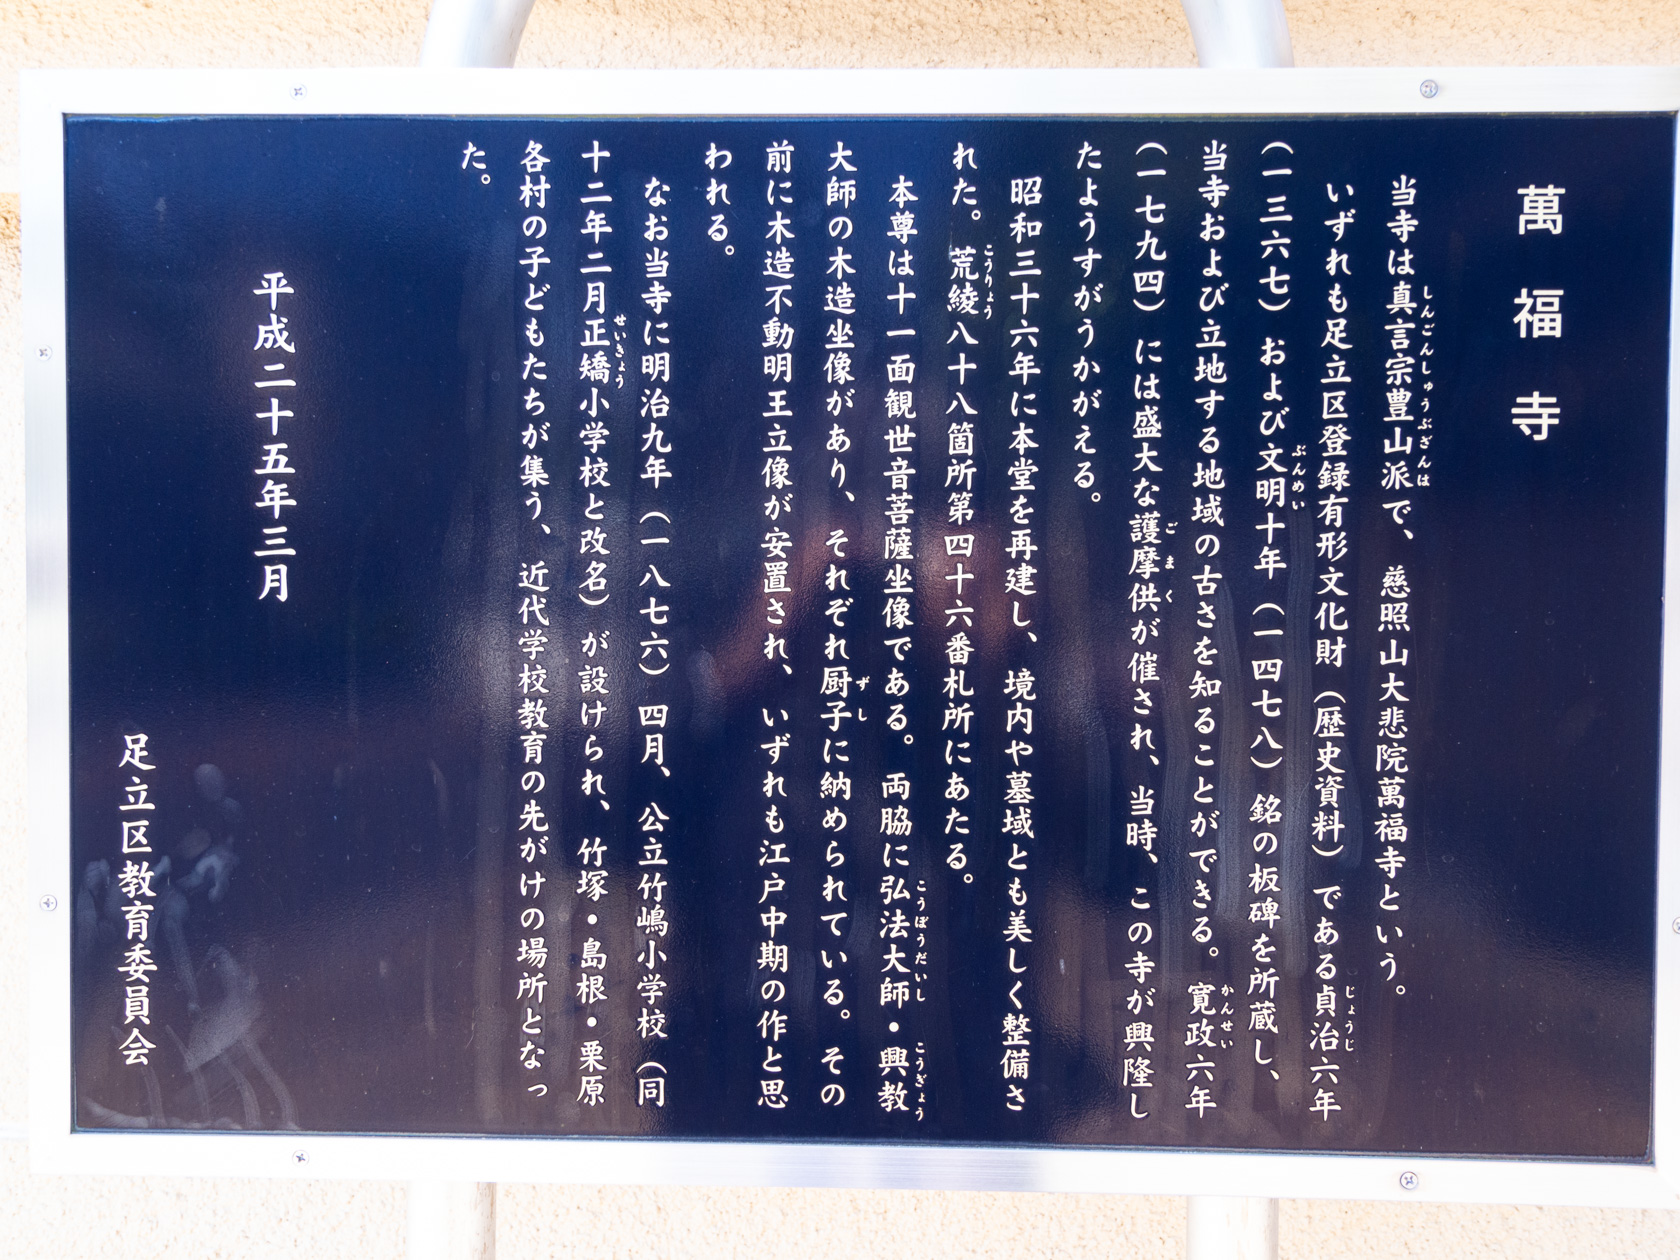 萬福寺
当寺は真言宗豊山派で、慈照山大悲院萬福寺という。
いずれも足立区登録有形文化財（歴史資料）である貞治六年
（一三六七）および文明十年（一四七八）銘の板碑を所蔵し、
当寺および立地する地域の古さを知ることができる。寛政六年
（一七九四）には盛大な護摩供が催され、当時、この寺が興隆し
たようすがうかがえる。
昭和三十六年に本堂を再建し、境内や墓域とも美しく整備さ
れた。荒綾八十八箇所第四十六番札所にあたる。
本尊は十一面観世音菩薩坐像である。両脇に弘法大師・興教
大師の木造坐像があり、それぞれ厨子に納められている。その
前に木造不動明王立像が安置され、いずれも江戸中期の作と思
われる。
なお当寺に明治九年（一八七六）四月、公立竹嶋小学校（同
十二年二月正矯小学校と改名）が設けられ、竹塚・島根・栗原
各村の子どもたちが集う、近代学校教育の先がけの場所となっ
た。
平成二十五年三月
足立区教育委員会
しんごんしゅうぶざんは
じょうじ
ぶんめい
かんせい
ごまく
こうりょう
こうぼうだいし
こうぎょう
ずし
せいきょう